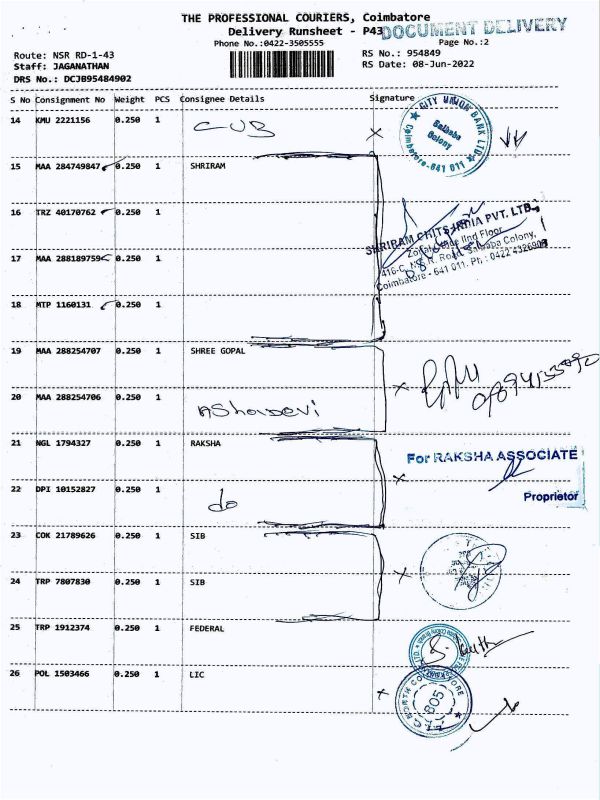 THE PROFESSIONAL COURIERS, Coimbatore
Delivery Runsheet - P43
DOCUMENT DELIVERY
Phone No.:0422-3505555
Page No.:2
Route: NSR RD-1-43
RS No.: 954849
Staff: JAGANATHAN
RS Date: 08-Jun-2022
DRS No.: DCJB95484902
S No Consignment No Weight PCS Consignee Details Signature
14 KMU 2221156 0.250 1 CUB
CITY UNION BANK LTD
Saibaba Colony
Coimbatore-641 011
15 MAA 284749847 0.250 1 SHRIRAM
16 TRZ 40170762 0.250 1
SHRIRAM CHITS INDIA PVT. LTD.,
Zonal Office IInd Floor
416-C, N.S.R. Road, Saibaba Colony,
Coimbatore - 641 011. Ph : 0422 4326903
17 MAA 288189759 0.250 1
18 MTP 1160131 0.250 1
19 MAA 288254707 0.250 1 SHREE GOPAL
20 MAA 288254706 0.250 1 AShovDevi
21 NGL 1794327 0.250 1 RAKSHA
For RAKSHA ASSOCIATE
Proprietor
22 DPI 10152827 0.250 1 do
23 COK 21789626 0.250 1 SIB
24 TRP 7807830 0.250 1 SIB
25 TRP 1912374 0.250 1 FEDERAL
26 POL 1503466 0.250 1 LIC
805